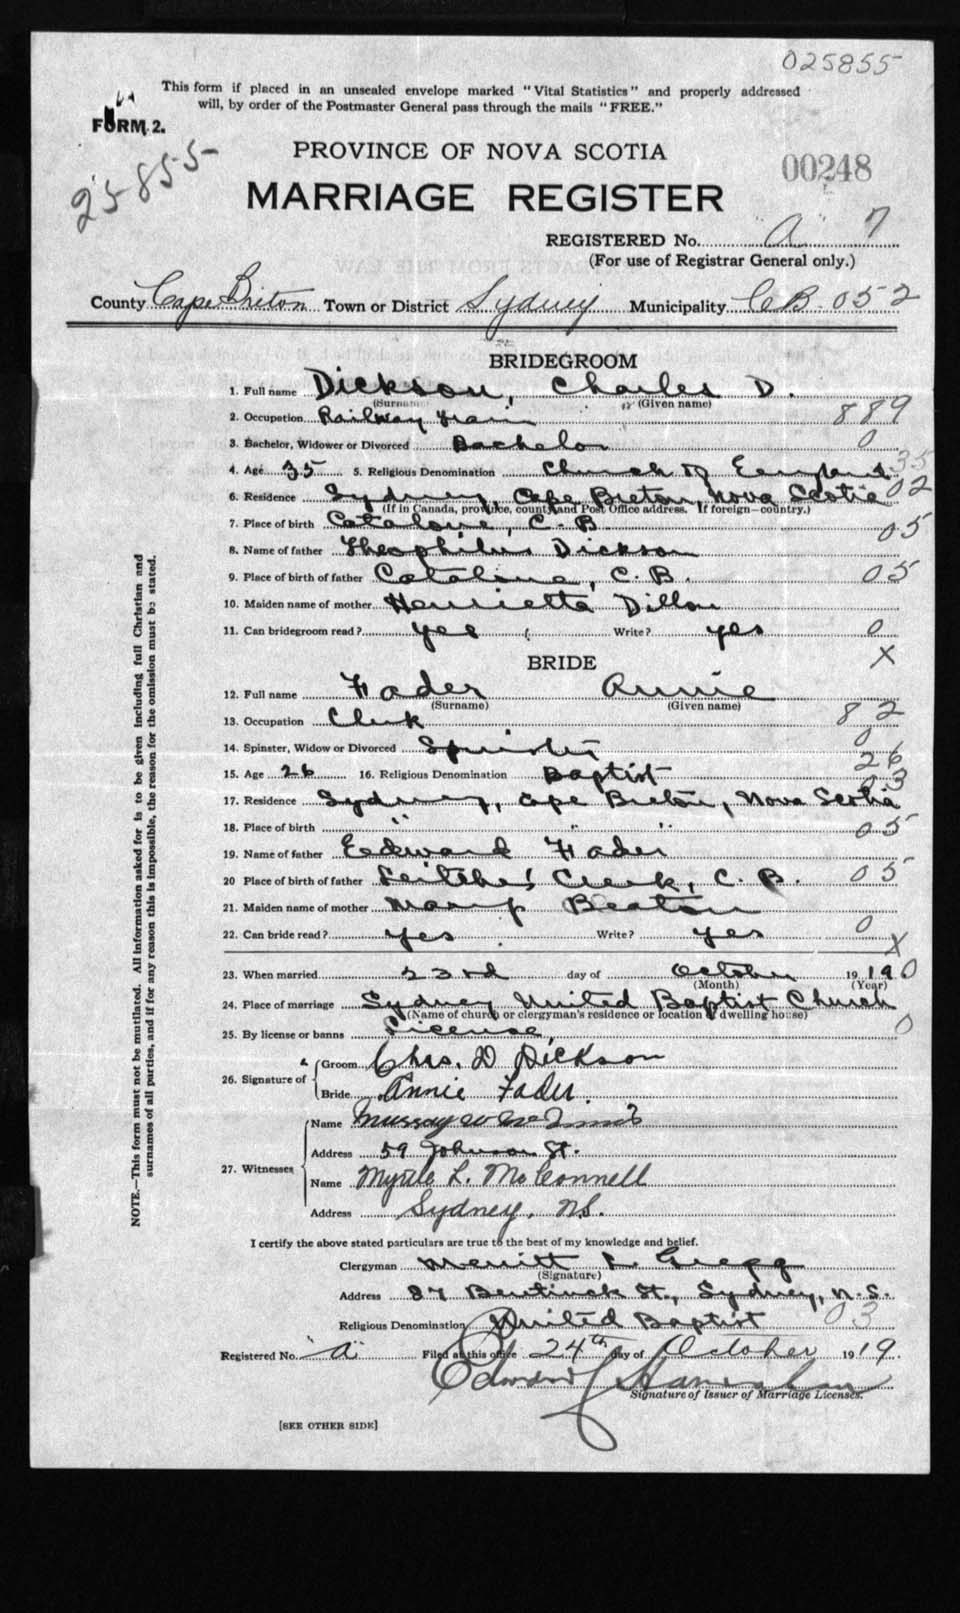 025855
This form if placed in an unsealed envelope marked "Vital Statistics" and properly addressed
will, by order of the Postmaster General pass through the mails "FREE."
FORM 2.
25855
PROVINCE OF NOVA SCOTIA
00248
MARRIAGE REGISTER
REGISTERED No. "A" 7
(For use of Registrar General only.)
County Cape Breton Town or District Sydney Municipality C B. 052
BRIDEGROOM
1. Full name Dickson, Charles D.
(Surname) (Given name)
2. Occupation Railway 889
3. Bachelor, Widower or Divorced Bachelor 0
4. Age 35 5. Religious Denomination Church of England 35
6. Residence Sydney, Cape Breton, Nova Scotia 02
(If in Canada, province, county and Post Office address. If foreign—country.)
7. Place of birth Catalone, C. B. 05
8. Name of father Theophilus Dickson
9. Place of birth of father Catalone, C. B. 05
10. Maiden name of mother Henrietta Dillon
11. Can bridegroom read? yes Write? yes 0
X
BRIDE
12. Full name Fader Annie
(Surname) (Given name)
13. Occupation Clerk 82
14. Spinster, Widow or Divorced Spinster 0
15. Age 26 16. Religious Denomination Baptist 26
03
17. Residence Sydney, Cape Breton, Nova Scotia
18. Place of birth " " " 05
19. Name of father Edward Fader
20 Place of birth of father Leitches Creek, C. B. 05
21. Maiden name of mother Mary Beaton
22. Can bride read? yes Write? yes 0
X
23. When married 23rd day of October 19 19 0
(Month) (Year)
24. Place of marriage Sydney United Baptist Church
(Name of church or clergyman's residence or location of dwelling house)
25. By license or banns License 0
26. Signature of
Groom Chas. D Dickson
Bride Annie Fader.
27. Witnesses
Name Murray W
Address 59 Johnson St.
Name Myrtle L. McConnell
Address Sydney, N.S.
I certify the above stated particulars are true to the best of my knowledge and belief.
Clergyman Merritt L. Gregg
(Signature)
Address 87 Bentinck St., Sydney, N.S.
Religious Denomination United Baptist 03
Registered No. "A" Filed at this office 24th day of October 1919.
Edward Hanrahan
Signature of Issuer of Marriage Licenses.
[SEE OTHER SIDE]
NOTE.—This form must not be mutilated. All information asked for is to be given including full Christian and
surnames of all parties, and if for any reason this is impossible, the reason for the omission must be stated.